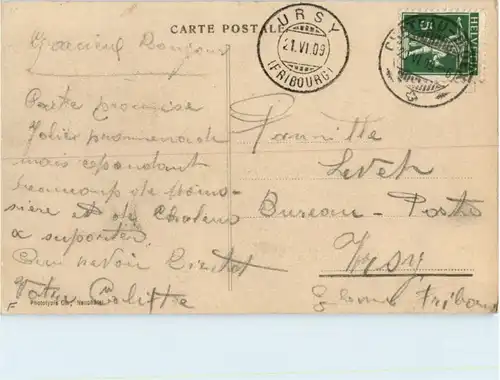 CARTE POSTALE
URSY
21.VI.09
(FRIBOURG)
HELVETIA
5
Gracieux Bonjour
Carte promise
Jolie promenade
mais cependant
beaucoup de
-sière et de chaleur
a supporter.
Au revoir
Votre Califtte
Famille
Bureau-Poste
Ursy
Fribourg
Phototypie Co., Neuchâtel